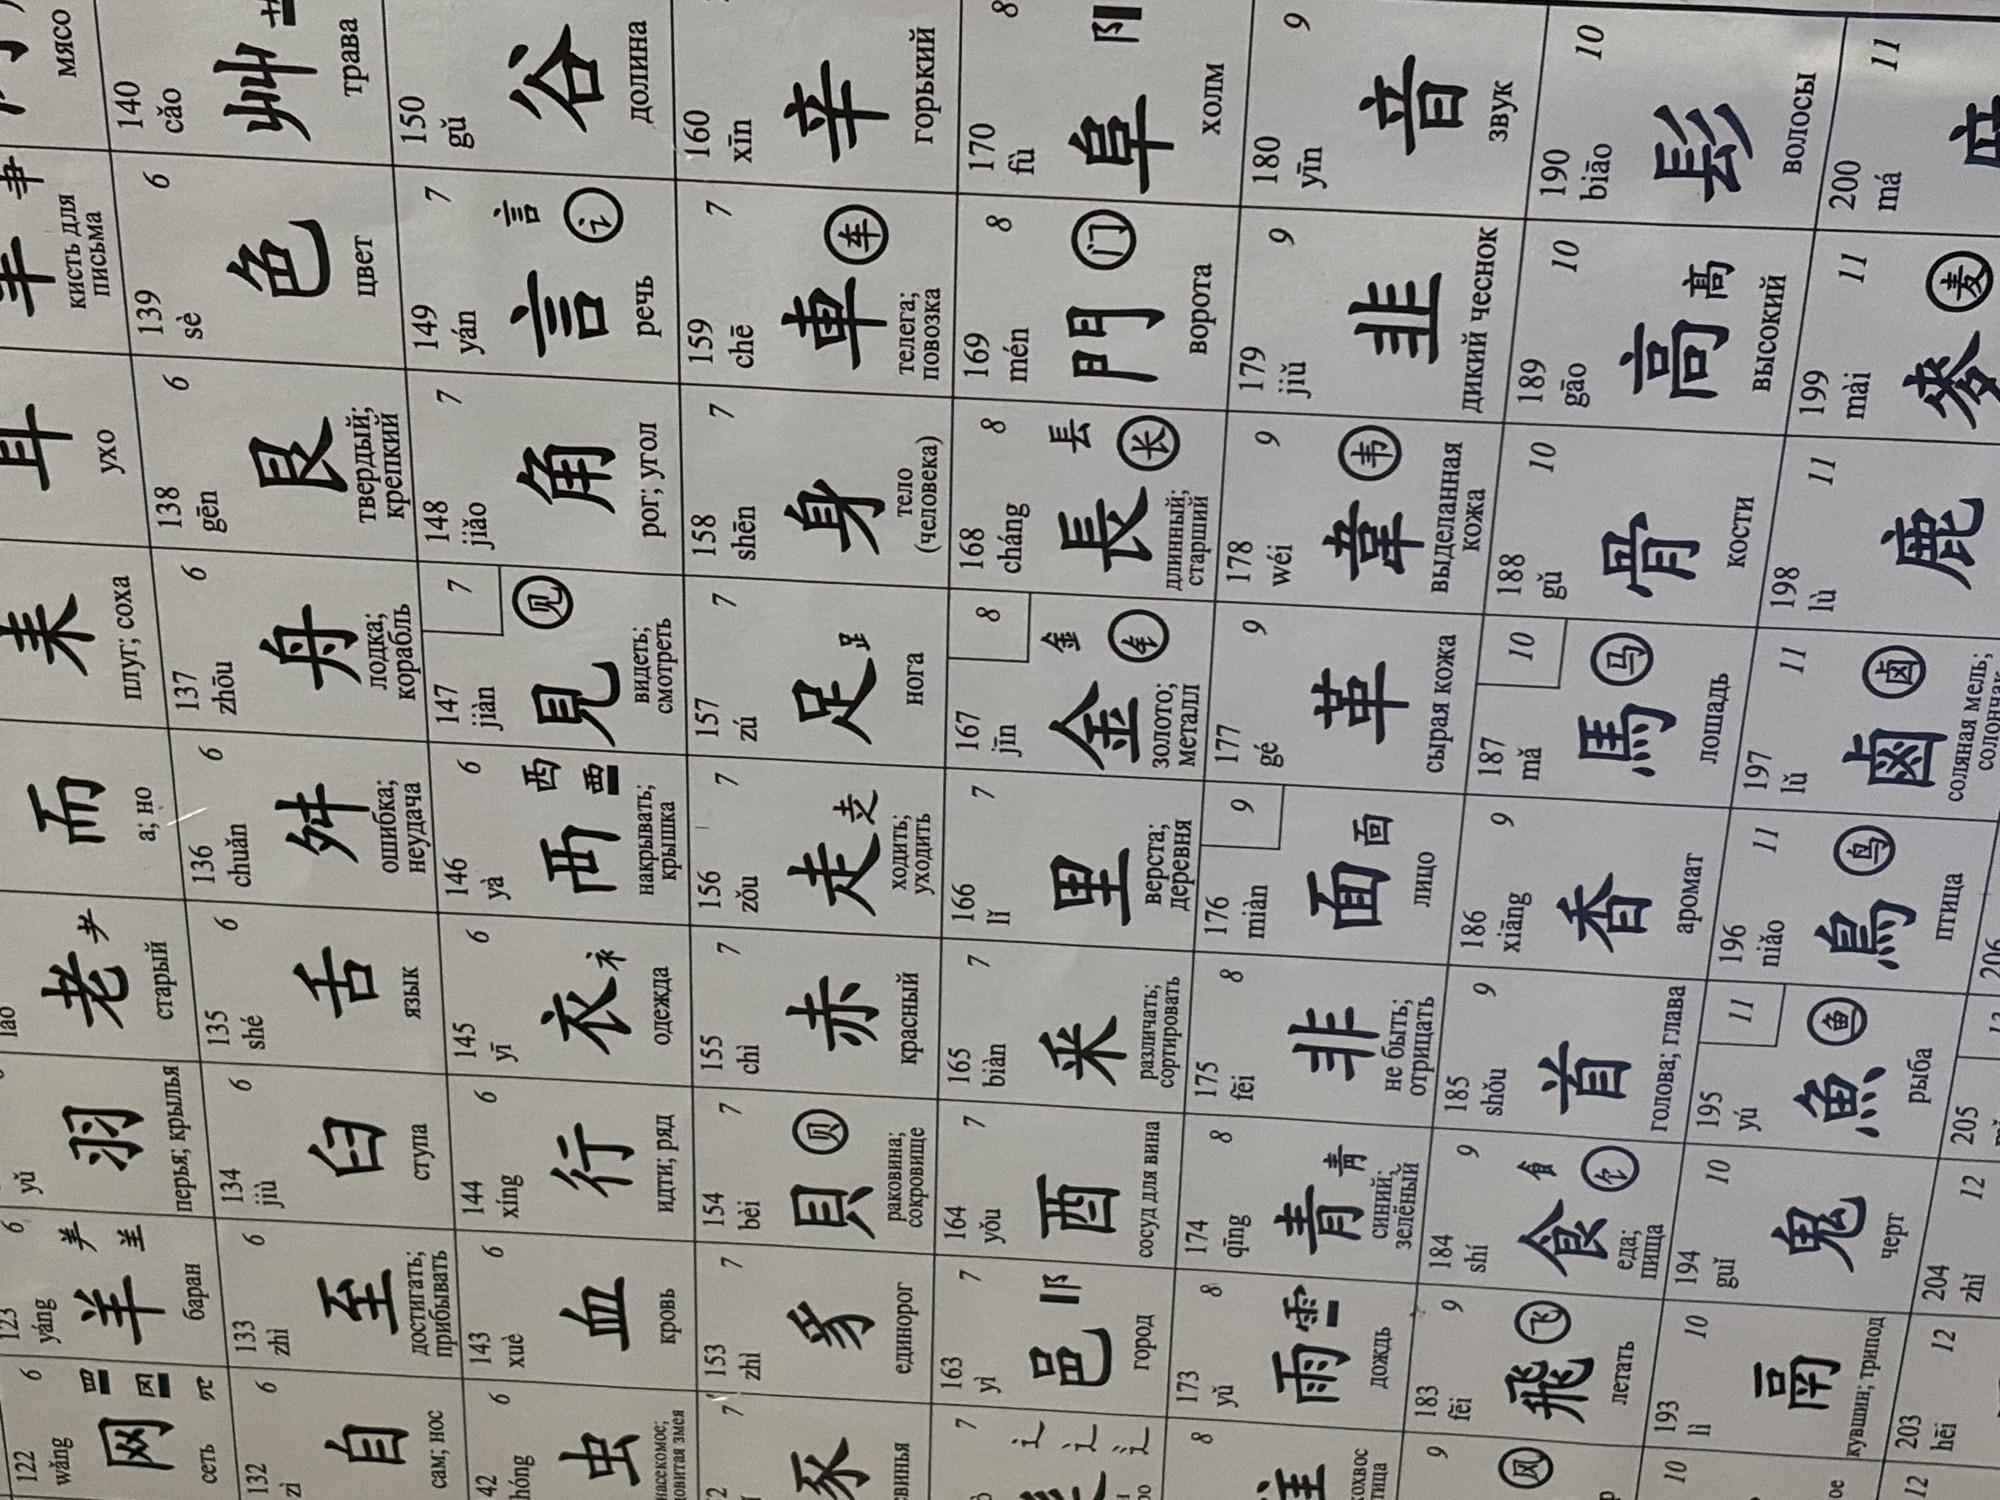 мясо
140
cǎo
艸
трава
150
gǔ
谷
долина
160
xīn
辛
горький
170 8
fù
阜 阝
холм
180 9
yīn
音
звук
190 10
biāo
髟
волосы
200 11
má
кисть для
письма
139 6
sè
色
цвет
149 7
yán
言 訁 讠
речь
159 7
chē
車 车
телега;
повозка
169 8
mén
門 门
ворота
179 9
jiǔ
韭
дикий чеснок
189 10
gāo
高 髙
высокий
199 11
mài
麥 麦
耳
ухо
138 6
gēn
艮
твердый;
крепкий
148 7
jiǎo
角
рог; угол
158 7
shēn
身
тело
(человека)
168 8
cháng
長 镸 长
длинный;
старший
178 9
wéi
韋 韦
выделанная
кожа
188 10
gǔ
骨
кости
198 11
lù
鹿
耒
плуг; соха
137 6
zhōu
舟
лодка;
корабль
147 7
jiàn
見 见
видеть;
смотреть
157 7
zú
足 ⻊
нога
167 8
jīn
金 釒 钅
золото;
металл
177 9
gé
革
сырая кожа
187 10
mǎ
馬 马
лошадь
197 11
lǔ
鹵 卤
соляная мель;
而
а; но
136 6
chuǎn
舛
ошибка;
неудача
146 6
yà
襾 西 覀
накрывать;
крышка
156 7
zǒu
走 赱
ходить;
уходить
166 7
lǐ
里
верста;
деревня
176 9
miàn
面 靣
лицо
186 9
xiāng
香
аромат
196 11
niǎo
鳥 鸟
птица
206
lǎo
老 耂
старый
135 6
shé
舌
язык
145 6
yī
衣 衤
одежда
155 7
chì
赤
красный
165 7
biàn
釆
различать;
сортировать
175 8
fēi
非
не быть;
отрицать
185 9
shǒu
首
голова; глава
195 11
yú
魚 鱼
рыба
205
yǔ
羽
перья; крылья
134 6
jiù
臼
ступа
144 6
xíng
行
идти; ряд
154 7
bèi
貝 贝
раковина;
сокровище
164 7
yǒu
酉
сосуд для вина
174 8
qīng
青 靑
синий;
зелёный
184 9
shí
食 飠 饣
еда;
пища
194 10
guǐ
鬼
черт
204 12
zhǐ
123 6
yáng
羊 ⺶ ⺷
баран
133 6
zhì
至
достигать;
прибывать
143 6
xuè
血
кровь
153 7
zhì
豸
единорог
163 7
yì
邑 阝
город
173 8
yǔ
雨 ⻗
дождь
183 9
fēi
飛 飞
летать
193 10
lì
鬲
кувшин; трипод
203 12
hēi
122 6
wǎng
网 罒
сеть
132 6
zì
自
сам; нос
42 6
hóng
虫
насекомое;
7
豕
свинья
7
8
9
风
10
12